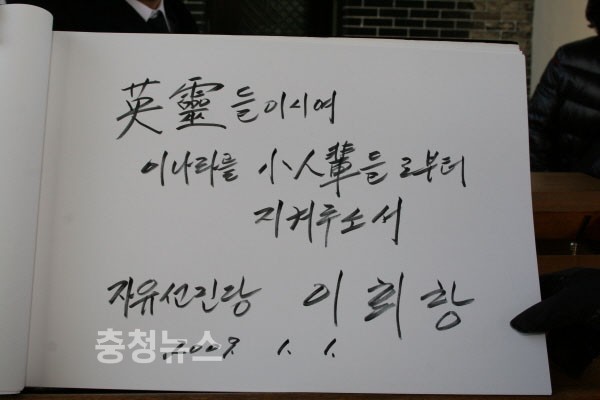 英靈들이시여
이나라를 小人輩들로부터
지켜주소서
자유선진당 이회창
2009. 1. 1.
충청뉴스